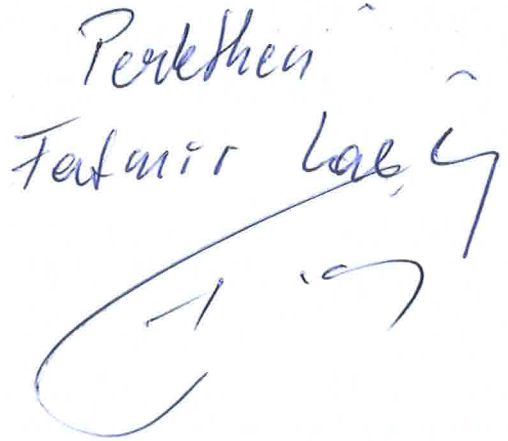 Perktheu
Fatmir Laçi